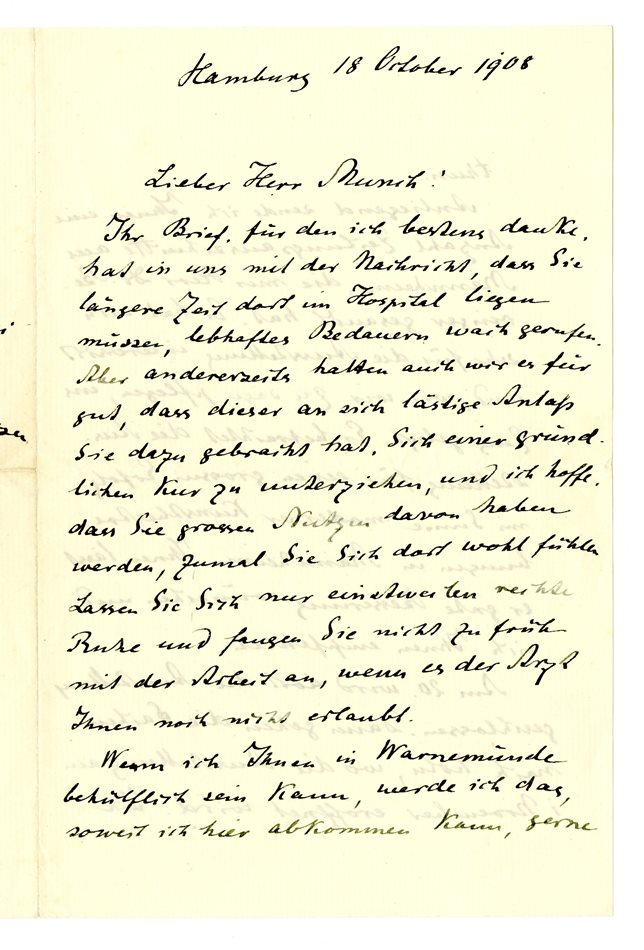 Hamburg 18 October 1908
Lieber Herr Munch!
Ihr Brief, für den ich bestens danke,
hat in uns mit der Nachricht, dass Sie
längere Zeit dort im Hospital liegen
müssen, lebhaftes Bedauern wach gerufen.
Aber andererseits halten auch wir es für
gut, dass dieser an sich lästige Anlaß
Sie dazu gebracht hat, Sich einer gründ-
lichen Kur zu unterziehen, und ich hoffe,
dass Sie grossen Nutzen davon haben
werden, zumal Sie Sich dort wohl fühlen
Lassen Sie Sich nur einstweilen rechte
Ruhe und fangen Sie nicht zu früh
mit der Arbeit an, wenn es der Arzt
Ihnen noch nicht erlaubt.
Wenn ich Ihnen in Warnemünde
behülflich sein kann, werde ich das,
soweit ich hier abkommen kann, gerne